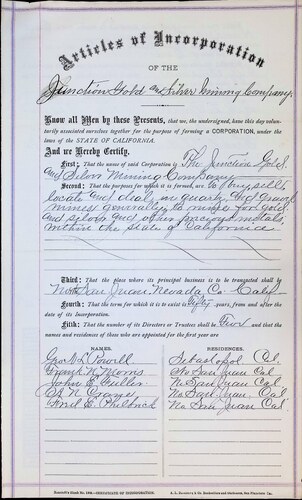 Articles of Incorporation
OF THE
Junction Gold and Silver Mining Company.
Know all Men by these Presents, that we, the undersigned, have this day voluntarily associated ourselves together for the purpose of forming a CORPORATION, under the
laws of the STATE OF CALIFORNIA.
And we Hereby Certify,
First: That the name of said Corporation is The Junction Gold
and Silver Mining Company
Second: That the purposes for which it is formed, are to buy sell
locate and deal in quartz and gravel
mines generally to mine for Gold
and silver and other precious metals
within the state of California
Third: That the place where its principal business is to be transacted shall be
North San Juan Nevada Co. Calif
Fourth: That the term for which it is to exist is Fifty years, from and after the
date of its Incorporation.
Fifth: That the number of its Directors or Trustees shall be Five and that the
names and residences of those who are appointed for the first year are
NAMES. RESIDENCES.
Geo. L. Powell Sebastopol Cal.
Frank N. Morris No San Juan Cal
John E. Fuller No San Juan Cal
Crane No San Juan Cal
Emil E. Philbrick No San Juan Cal
CERTIFICATE OF INCORPORATION.